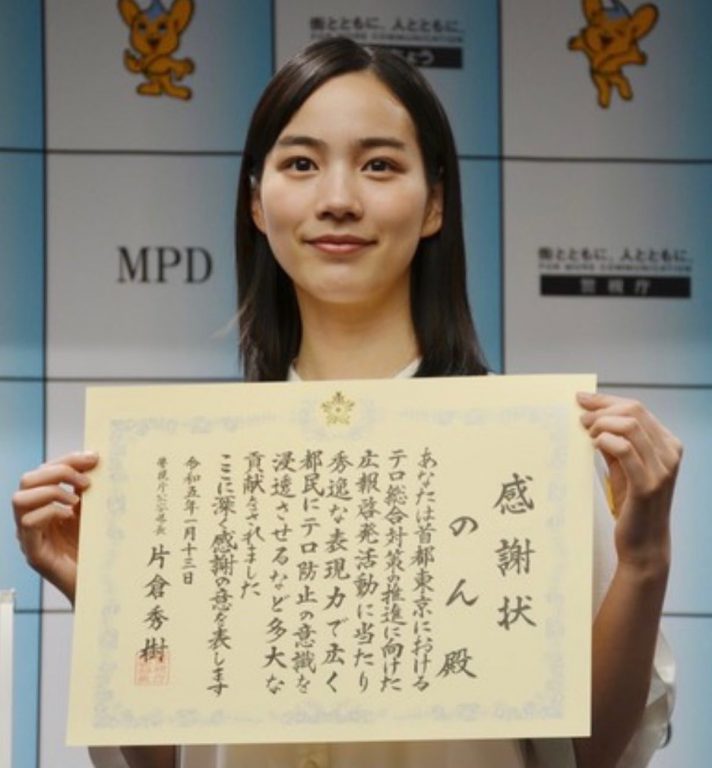 街とともに、人とともに。
FOR MORE COMMUNICATION
MPD
街とともに、人とともに。
FOR MORE COMMUNICATION
警視庁
感謝状
のん 殿
あなたは首都東京における
テロ総合対策の推進に向けた
広報啓発活動に当たり
秀逸な表現力で広く
都民にテロ防止の意識を
浸透させるなど多大な
貢献をされました
ここに深く感謝の意を表します
令和五年一月十三日
片倉秀樹